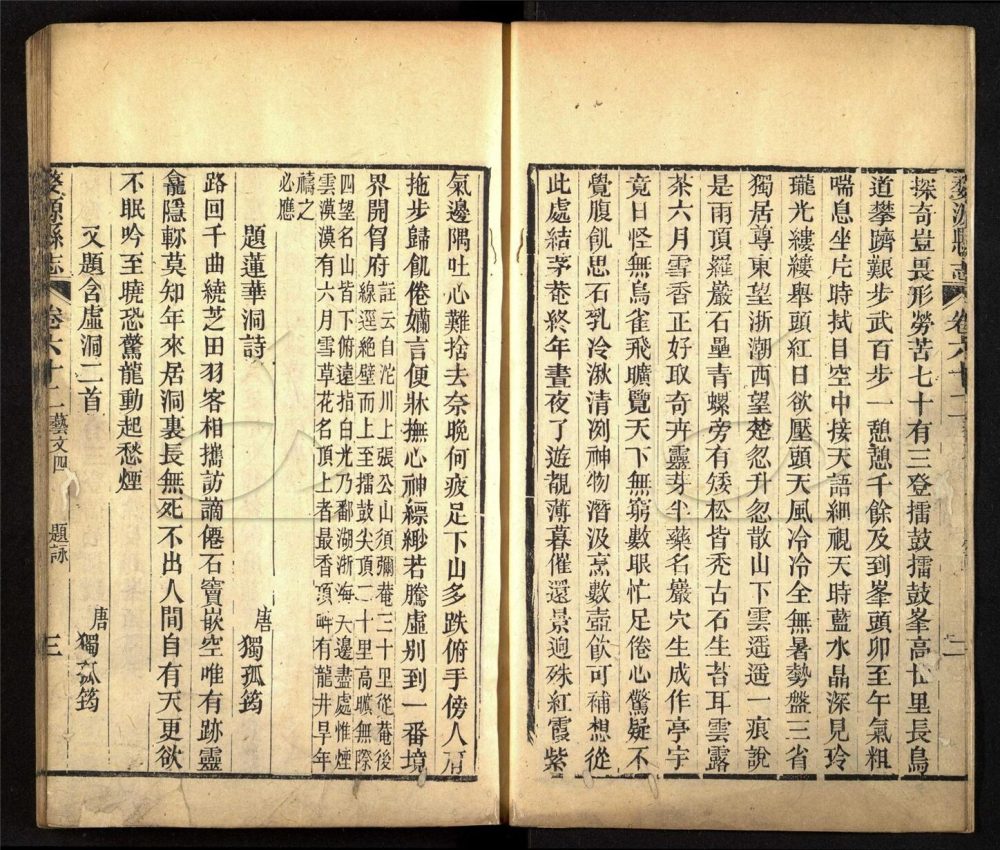 婺源縣志 卷六十二
探奇豈畏形勞苦七十有三登擂鼓擂鼓峯高廿里長鳥
道攀躋艱步武百步一憩憩千餘及到峯頭卯至午氣粗
喘息坐片時拭目空中接天語細視天時藍水晶深見玲
瓏光縷縷舉頭紅日欲壓頭天風冷冷全無暑勢盤三省
獨居尊東望浙潮西望楚忽升忽散山下雲遥遥一痕說
是雨頂羅巖石壘青螺旁有矮松皆禿古石生苔耳雲露
茶六月雪香正好取奇卉靈芽半藥名巖穴生成作亭宇
竟日怪無鳥雀飛曠覽天下無窮數眼忙足倦心驚疑不
覺腹飢思石乳冷湫清洌神物潛汲烹數壺飲可補想從
此處結茅菴終年晝夜了遊覩薄暮催還景迥殊紅霞紫
氣邊隅吐心難捨去奈晚何疲足下山多跌俯手傍人肩
拖步歸飢倦嬾言便牀撫心神縹緲若騰虛別到一番境
界開胷府註云自沱川上張公山須彌菴三十里從菴後
一線逕絶壁而上至擂鼓尖頂二十里高曠無際
四望名山皆下俯遠指白光乃鄱湖浙海天邊盡處惟煙
雲漠漠有六月雪草花名頂上者最香頂畔有龍井旱年
禱之
必應
題蓮華洞詩 唐 獨孤筠
路回千曲繞芝田羽客相攜訪謫僊石寶嵌空唯有跡靈
龕隱軫莫知年來居洞裏長無死不出人間自有天更欲
不眠吟至曉恐驚龍動起愁煙
又題含虛洞二首 唐 獨孤筠
婺源縣志 卷六十二 藝文四 題詠 三